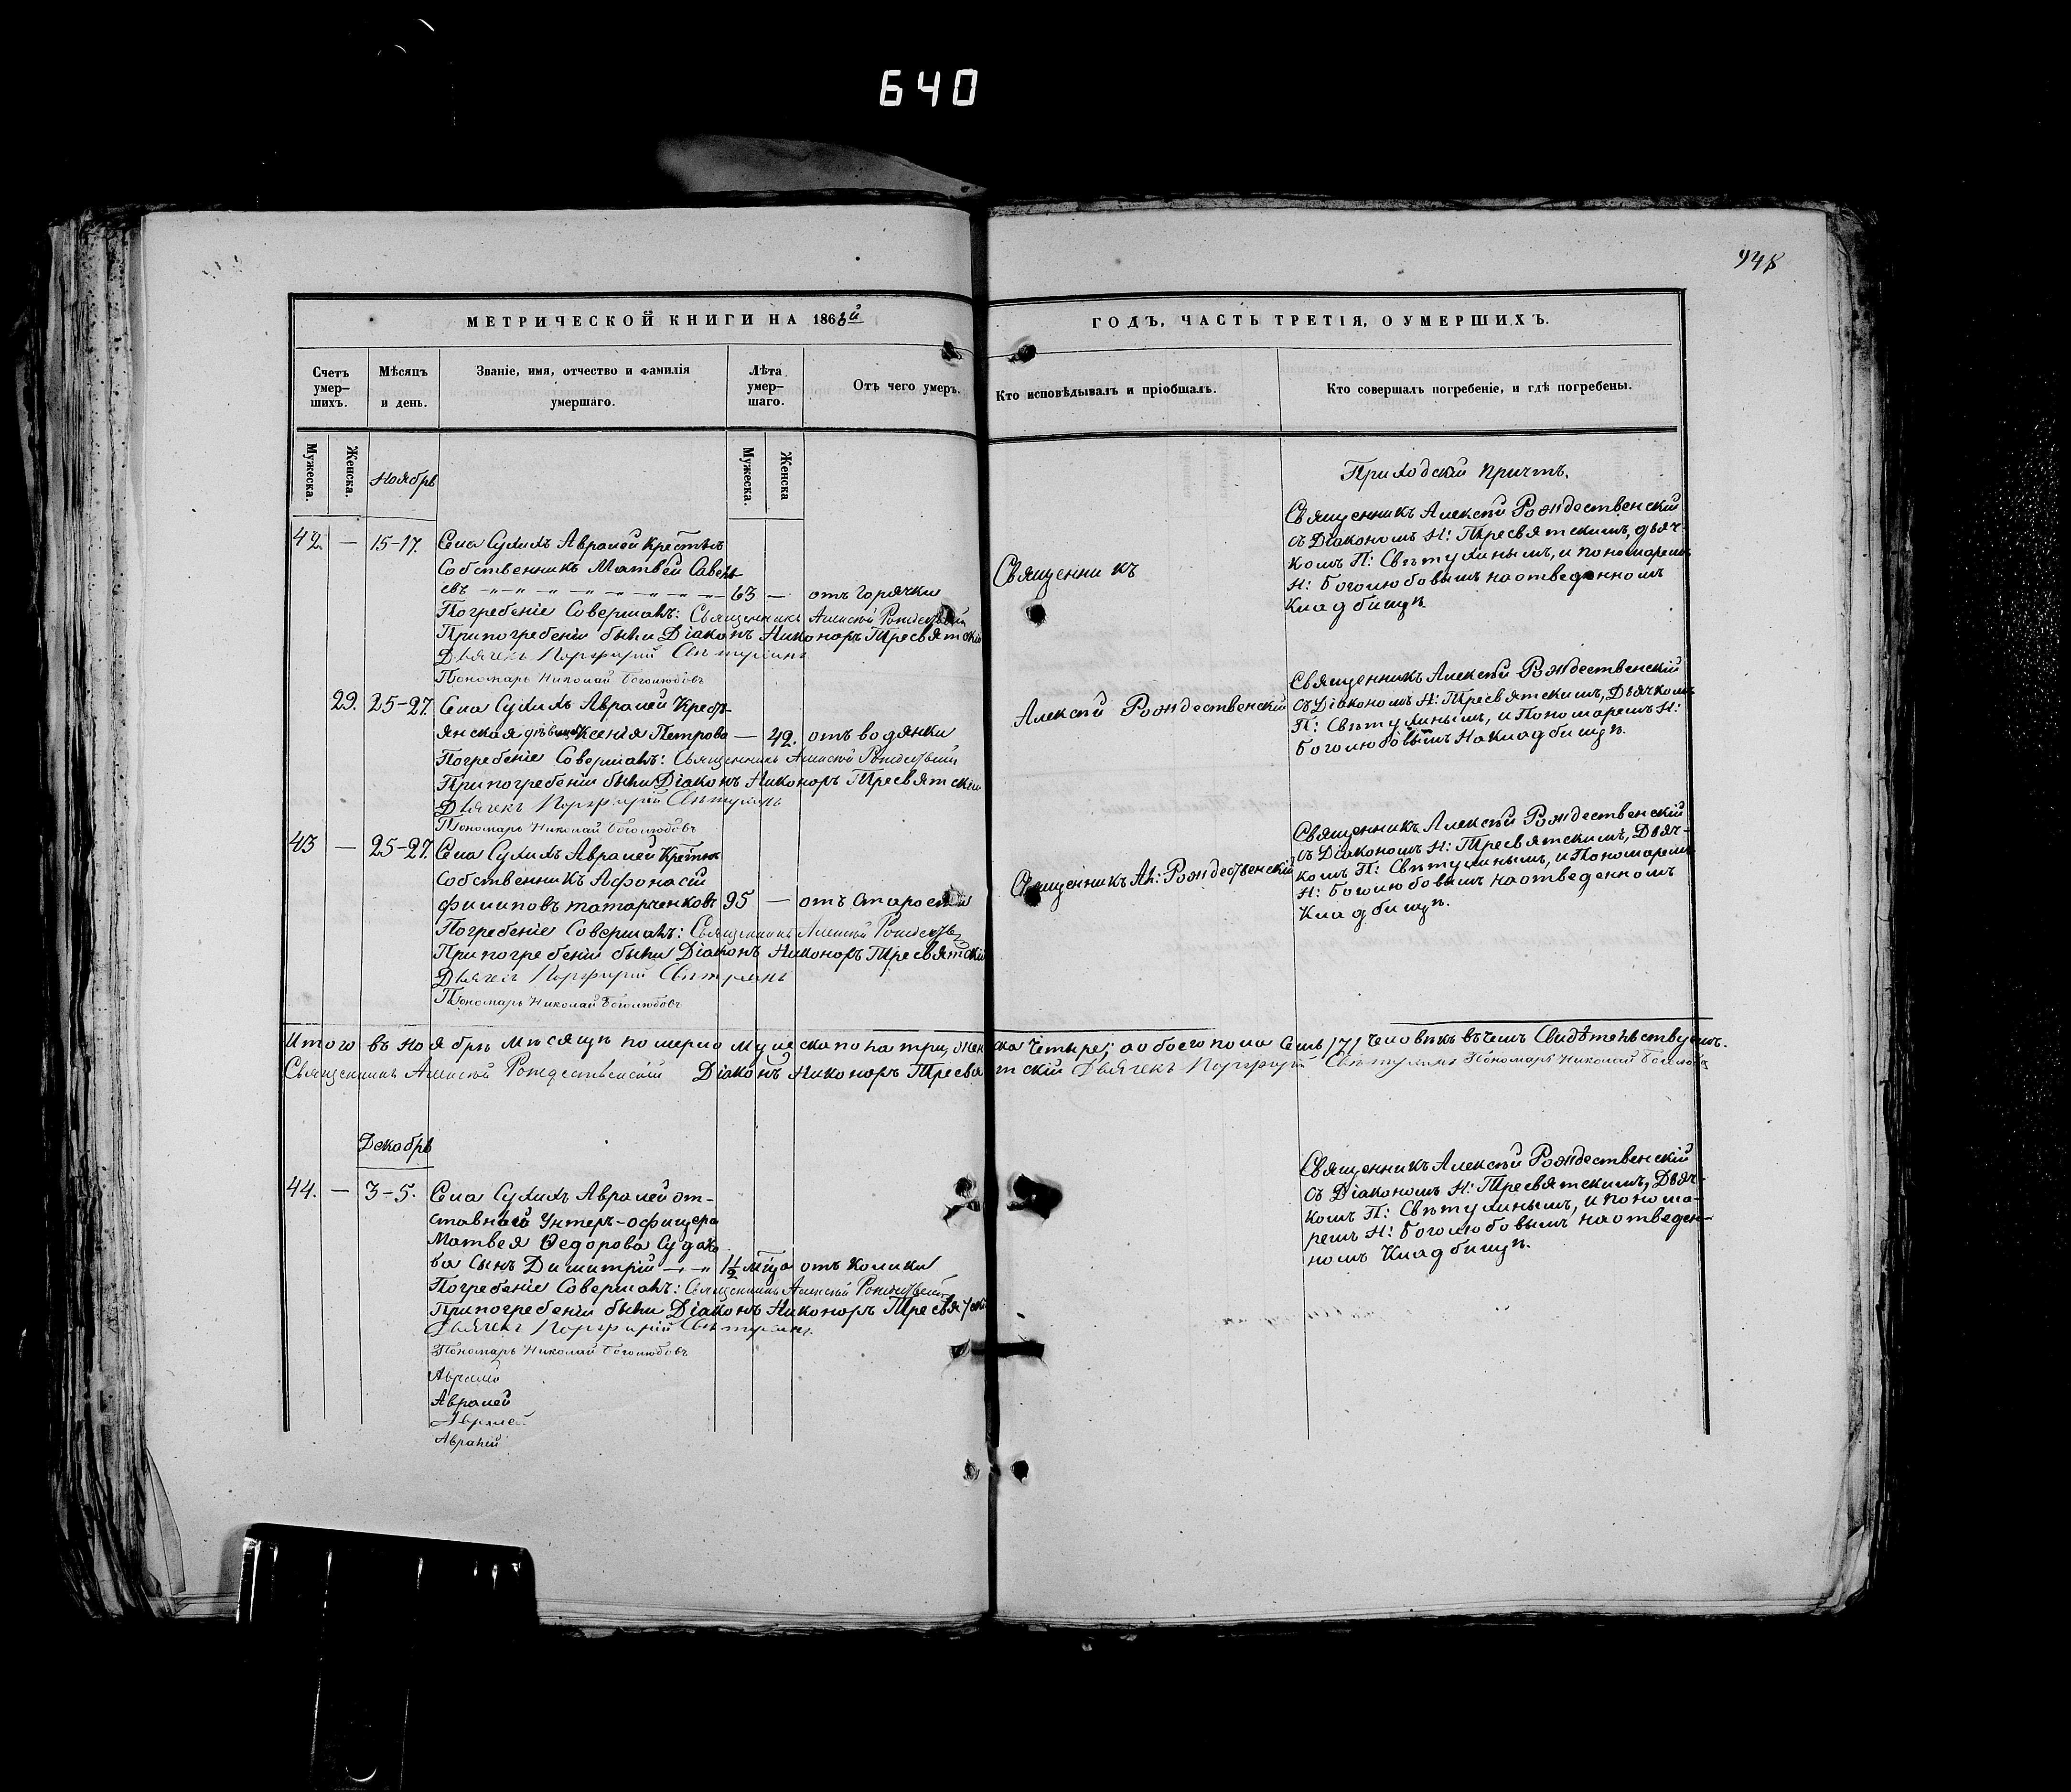 640
948
МЕТРИЧЕСКОЙ КНИГИ НА 1868й
ГОДЪ, ЧАСТЬ ТРЕТІЯ, О УМЕРШИХЪ.
Счетъ умер-шихъ.
Мѣсяцъ и день.
Званіе, имя, отчество и фамилія умершаго.
Лѣта умер-шаго.
Отъ чего умеръ.
Кто исповѣдывалъ и пріобщалъ.
Кто совершалъ погребеніе, и гдѣ погребены.
Мужеска.
Женска.
Мужеска.
Женска
Ноябрь
Приходскій причтъ.
42. — 15-17. Села Сухихъ Авралей Крестьян
Собственникъ Матвей Савель
евъ 63 — отъ горячки
Погребеніе Совершалъ: Священникъ Алексѣй Рождественскій
При погребеніи были Діаконъ Никоноръ Тресвятскій
Дьячекъ Порфирій Свѣтухинъ
Пономарь Николай Боголюбовъ
Священникъ
Священникъ Алексѣй Рождественскій
съ Діакономъ Н: Тресвятскимъ, дьяч-
комъ П: Свѣтухинымъ, и пономаремъ
Н: Боголюбовымъ на отведенномъ
Кладбищѣ.
29. 25-27. Села Сухихъ Авралей Кресть-
янская дѣвица Ксенія Петрова — 42. отъ водянки
Погребеніе Совершалъ: Священникъ Алексѣй Рождественскій
При погребеніи были Діаконъ Никоноръ Тресвятскій
Дьячекъ Порфирій Свѣтухинъ
Пономарь Николай Боголюбовъ
Алексѣй Рождественскій
Священникъ Алексѣй Рождественскій
съ Діакономъ Н: Тресвятскимъ, Дьячкомъ
П: Свѣтухинымъ, и Пономаремъ Н:
Боголюбовымъ На кладбищѣ.
43 — 25-27. Села Сухихъ Авралей Крестьян
Собственникъ Афонасій
Филиповъ Татарченковъ 95 — отъ Старости
Погребеніе Совершалъ: Священникъ Алексѣй Рождеств
При погребеніи были Діаконъ Никоноръ Тресвятскій
Дьячекъ Порфирій Свѣтухинъ
Пономарь Николай Боголюбовъ
Священникъ Ал: Рождественскій
Священникъ Алексѣй Рождественскій
съ Діакономъ Н: Тресвятскимъ, Дьяч-
комъ П: Свѣтухинымъ, и Пономаремъ
Н: Боголюбовымъ на отведенномъ
Кладбищѣ.
Итого въ Ноябрѣ Мѣсяцѣ померло мужеска пола три, женска Четыре; а обоего пола Семь /7/ Человѣкъ въ чемъ Свидѣтельствуемъ.
Священникъ Алексѣй Рождественскій Діаконъ Никоноръ Тресвятскій Дьячекъ Порфирій Свѣтухинъ Пономарь Николай Боголюбовъ
Декабрь
44. — 3-5. Села Сухихъ Авралей от-
ставнаго Унтеръ-офицера
Матвея Ѳедорова Судако
ва Сынъ Димитрій 1½ мѣца отъ колики
Погребеніе Совершалъ: Священникъ Алексѣй Рождественскій
При погребеніи были Діаконъ Никоноръ Тресвятскій
Дьячекъ Порфирій Свѣтухинъ.
Пономарь Николай Боголюбовъ
Авралей
Авралей
Авралей
Священникъ Алексѣй Рождественскій
съ Діакономъ Н: Тресвятскимъ, Дьяч-
комъ П: Свѣтухинымъ, и понома-
ремъ Н: Боголюбовымъ на отведен-
номъ Кладбищѣ.